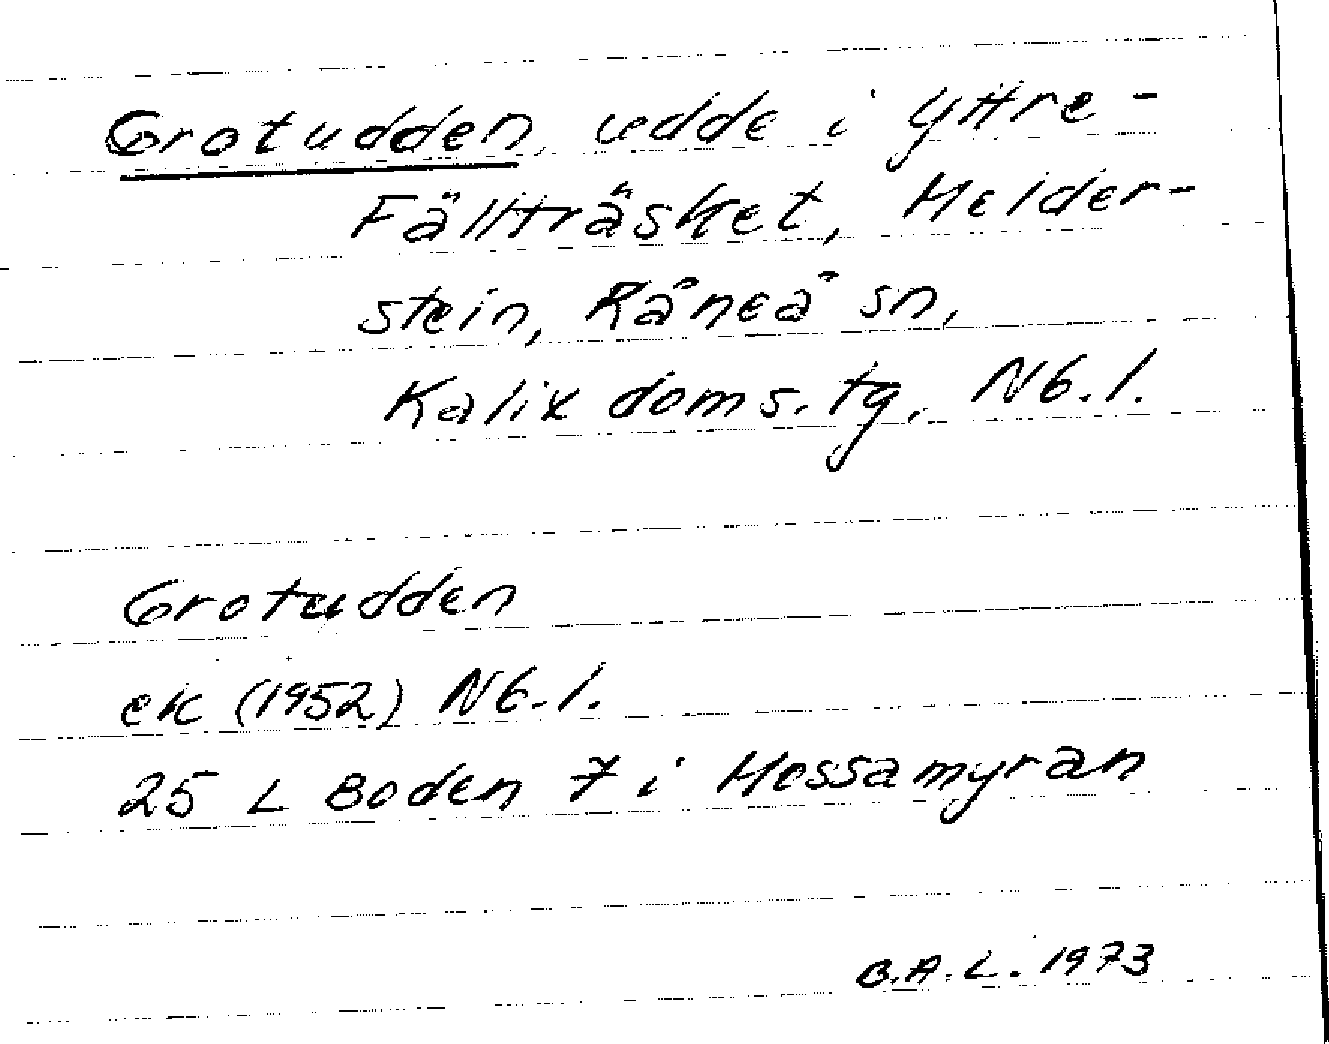 Grotudden, udde i Yttre-
Fällträsket, Melder-
stein, Råneå sn,
Kalix doms. tg, Nb. l.
Grotudden
ek (1952) Nb. l.
25 L Boden 7 i Hossamyran
B.A.L. 1973